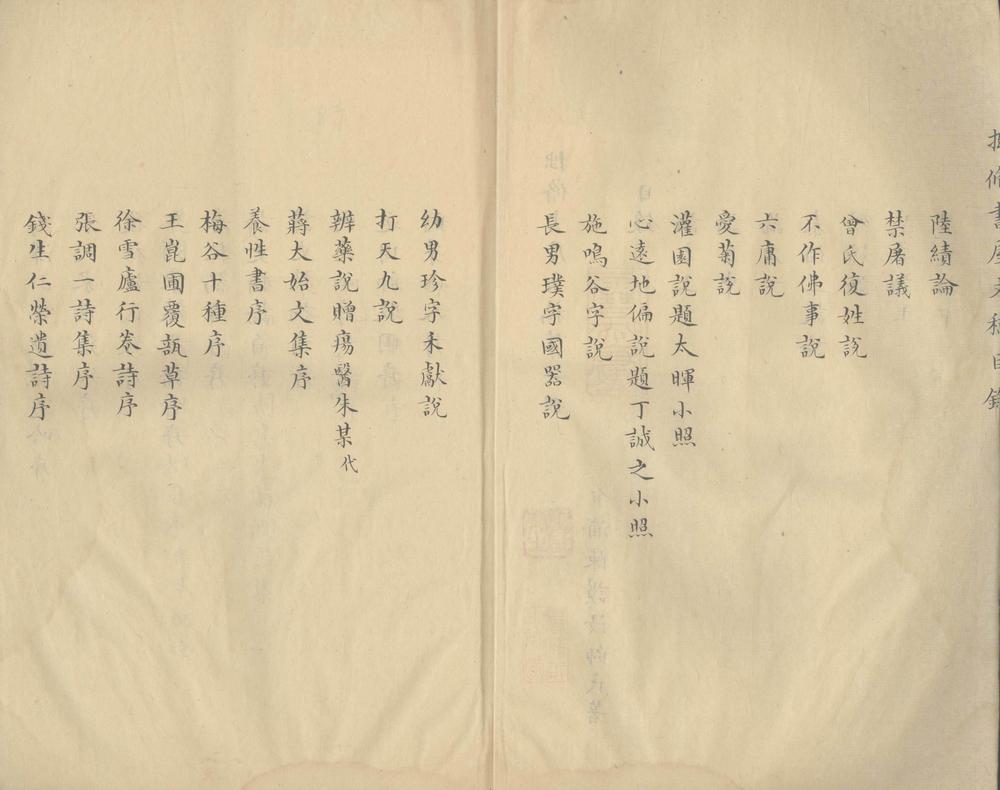 陸績論
禁屠議
曾氏復姓説
不作佛事説
六庸説
愛菊説
灌園説題太暉小照
心遠地偏説題丁誠之小照
施鳴谷字説
長男璞字國器説
幼男珍字未獻説
打天九説
辨藥説贈瘍醫朱某代
蔣大始文集序
養性書序
梅谷十種序
王崑圃覆瓿草序
徐雪廬行卷詩序
張調一詩集序
錢生仁榮遺詩序